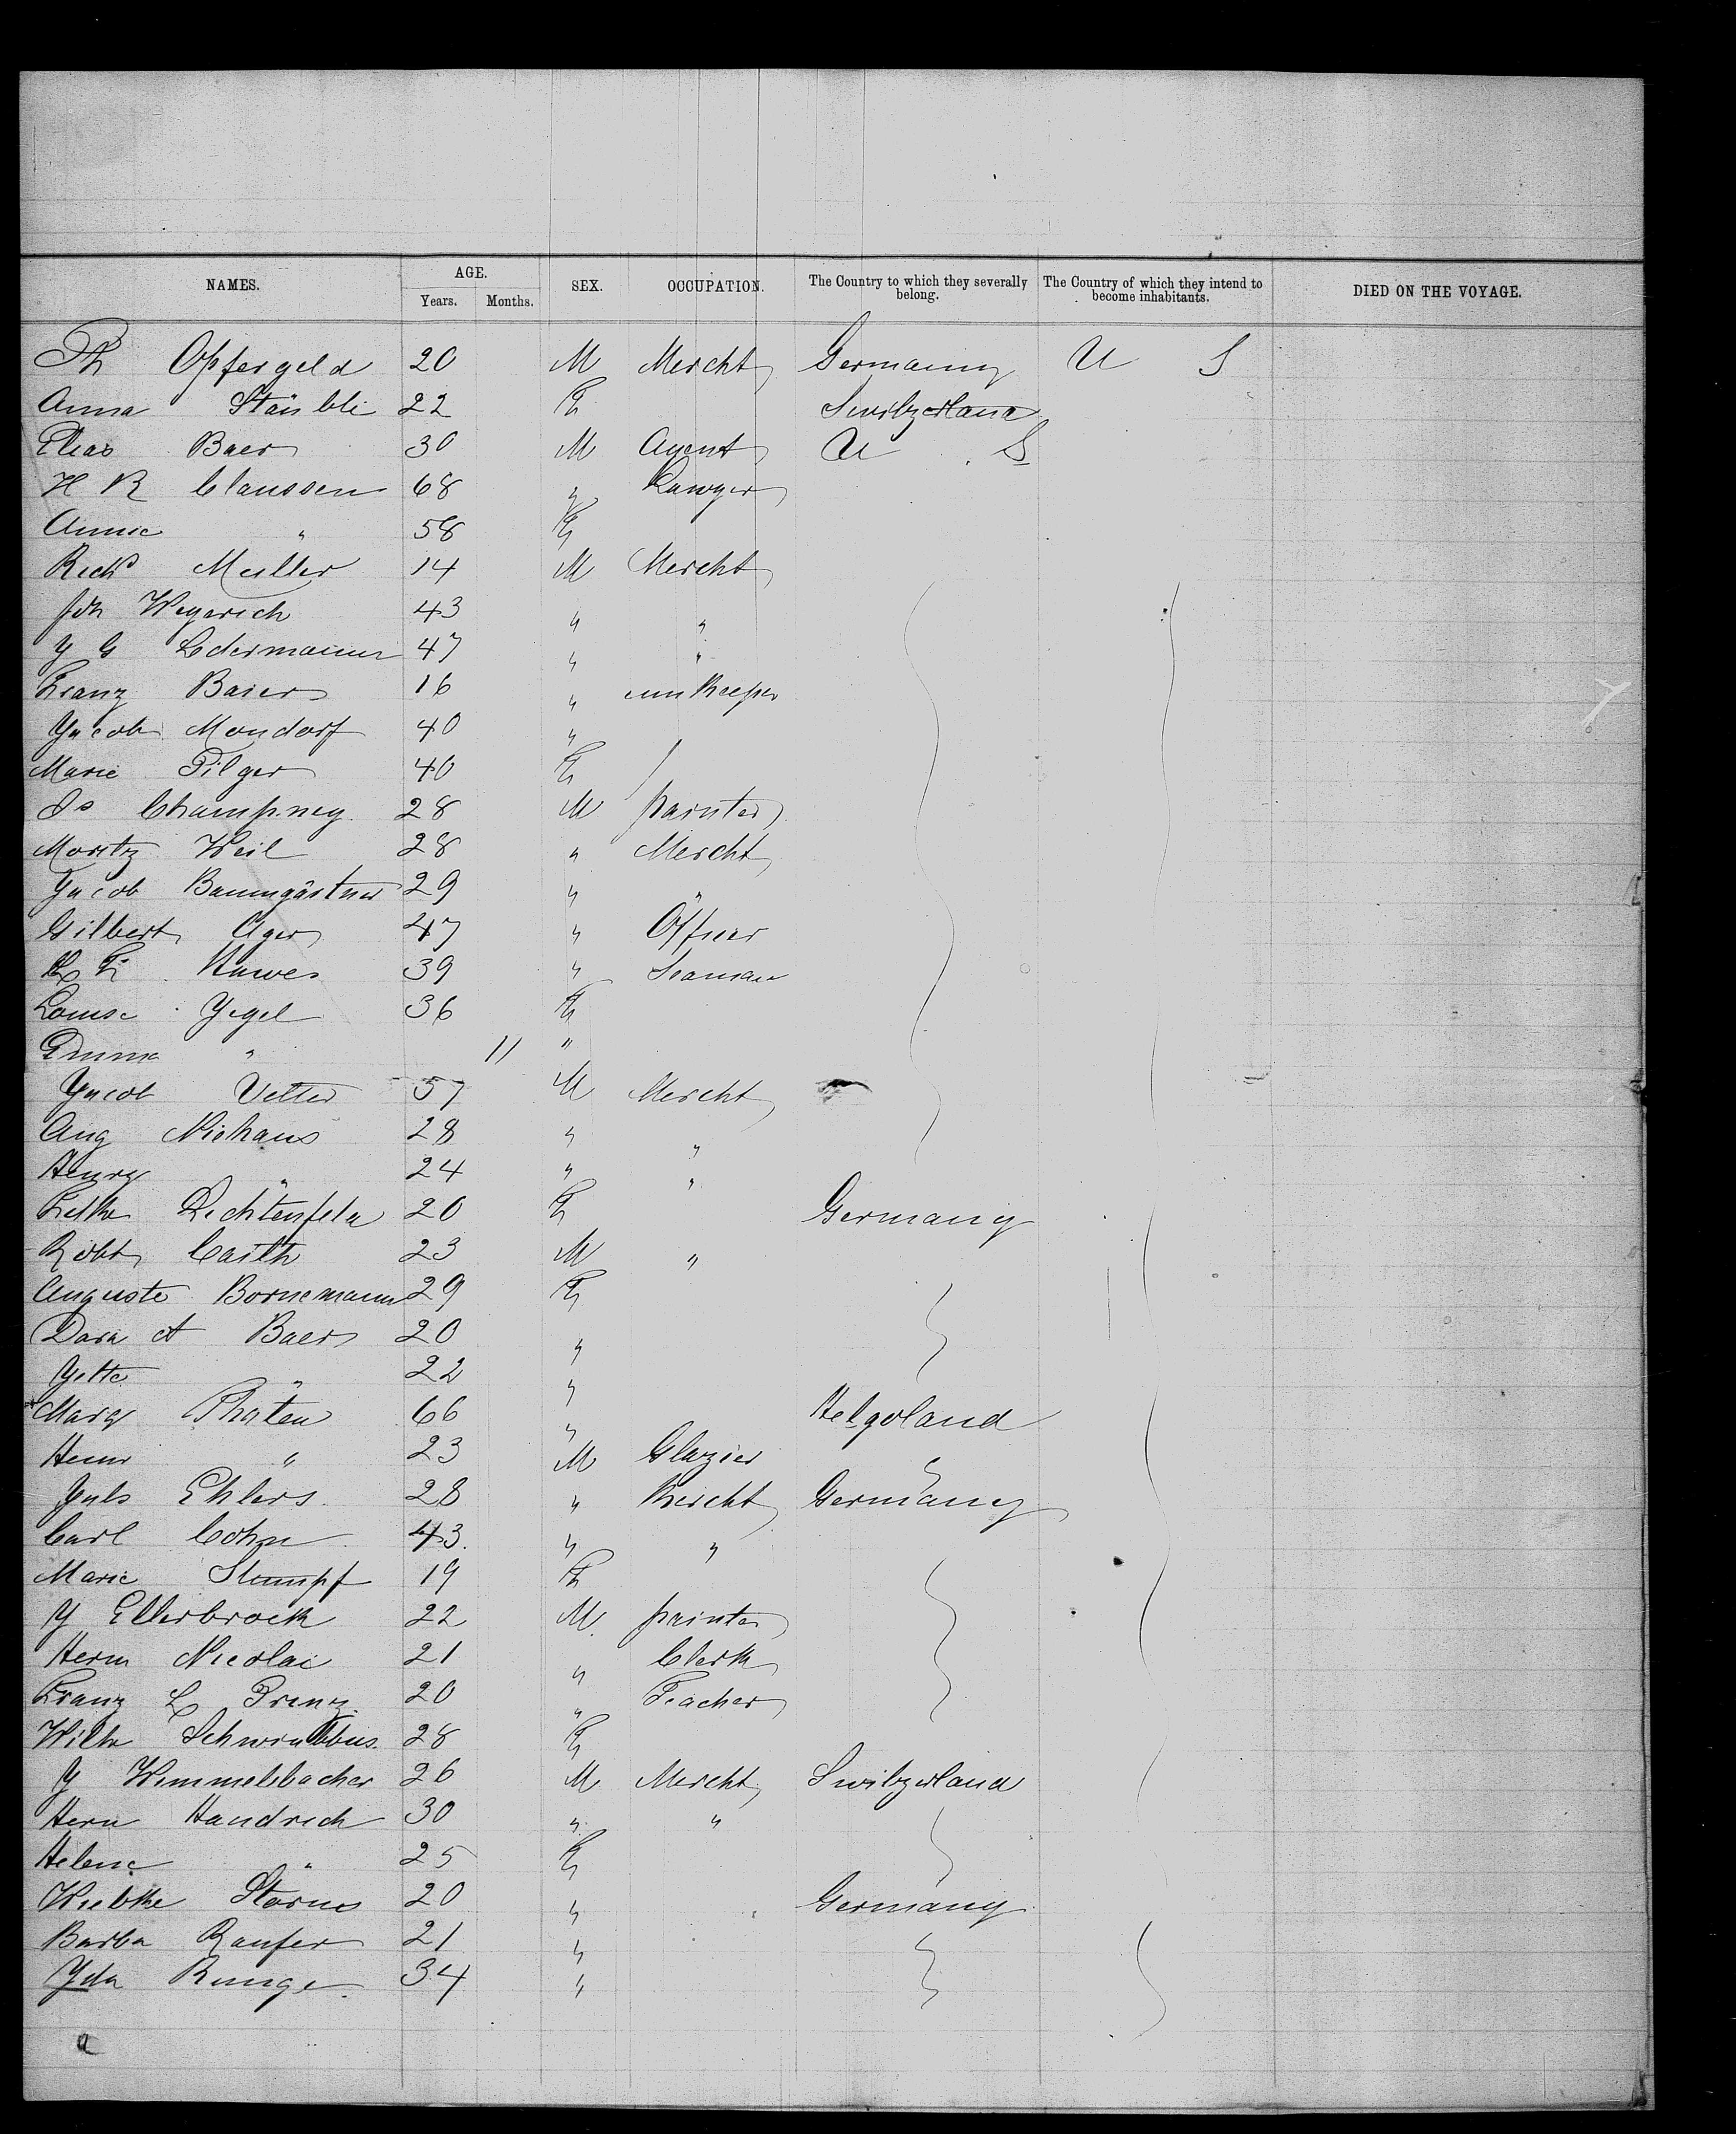 NAMES. AGE. SEX. OCCUPATION. The Country to which they severally belong. The Country of which they intend to become inhabitants. DIED ON THE VOYAGE.
Years. Months.
Th Opfergeld 20 M Mercht Germany U S
Anna Stäubli 22 F Switzerland
Elias Baer 30 M Agent U S
H R Claussen 68 " Lawyer
Annie " 58 F
Richd Muller 14 M Mercht
Joh Wegerich 43 " "
J G Ledermann 47 " "
Franz Baier 16 " innkeeper
Jacob Mondorf 40 "
Marie Pilger 40 F /
Js Champney 28 M painter
Moritz Weil 28 " Mercht
Jacob Baumgärtner 29 " "
Gilbert Ager 47 " Officer
L F Hawes 39 " Seaman
Louise Jegel 36 F
Emma " 11 "
Jacob Vetter 57 M Mercht
Aug Niehaus 28 " "
Henry " 24 " "
Lichtenfeld 20 F Germany
Robt 23 M "
Auguste Bornemann 29 F
Dora A Baer 20 "
Jette " 22 "
Marg 66 " Helgoland
23 M Glazier "
Juls Ehlers 28 " Mercht Germany
Carl Cohn 43 " "
Marie Stumpf 19 F
J Ellerbrock 22 M painter
Herm Nicolai 21 " Clerk
Franz L Prenz 20 " Teacher
Wilh 28 F
J Himmelsbacher 26 M Mercht Switzerland
Herm Handrich 30 " "
Helene " 25 F
Wiebke Storm 20 " Germany
Barba Raufer 21 "
Ida Runge 34 "
a